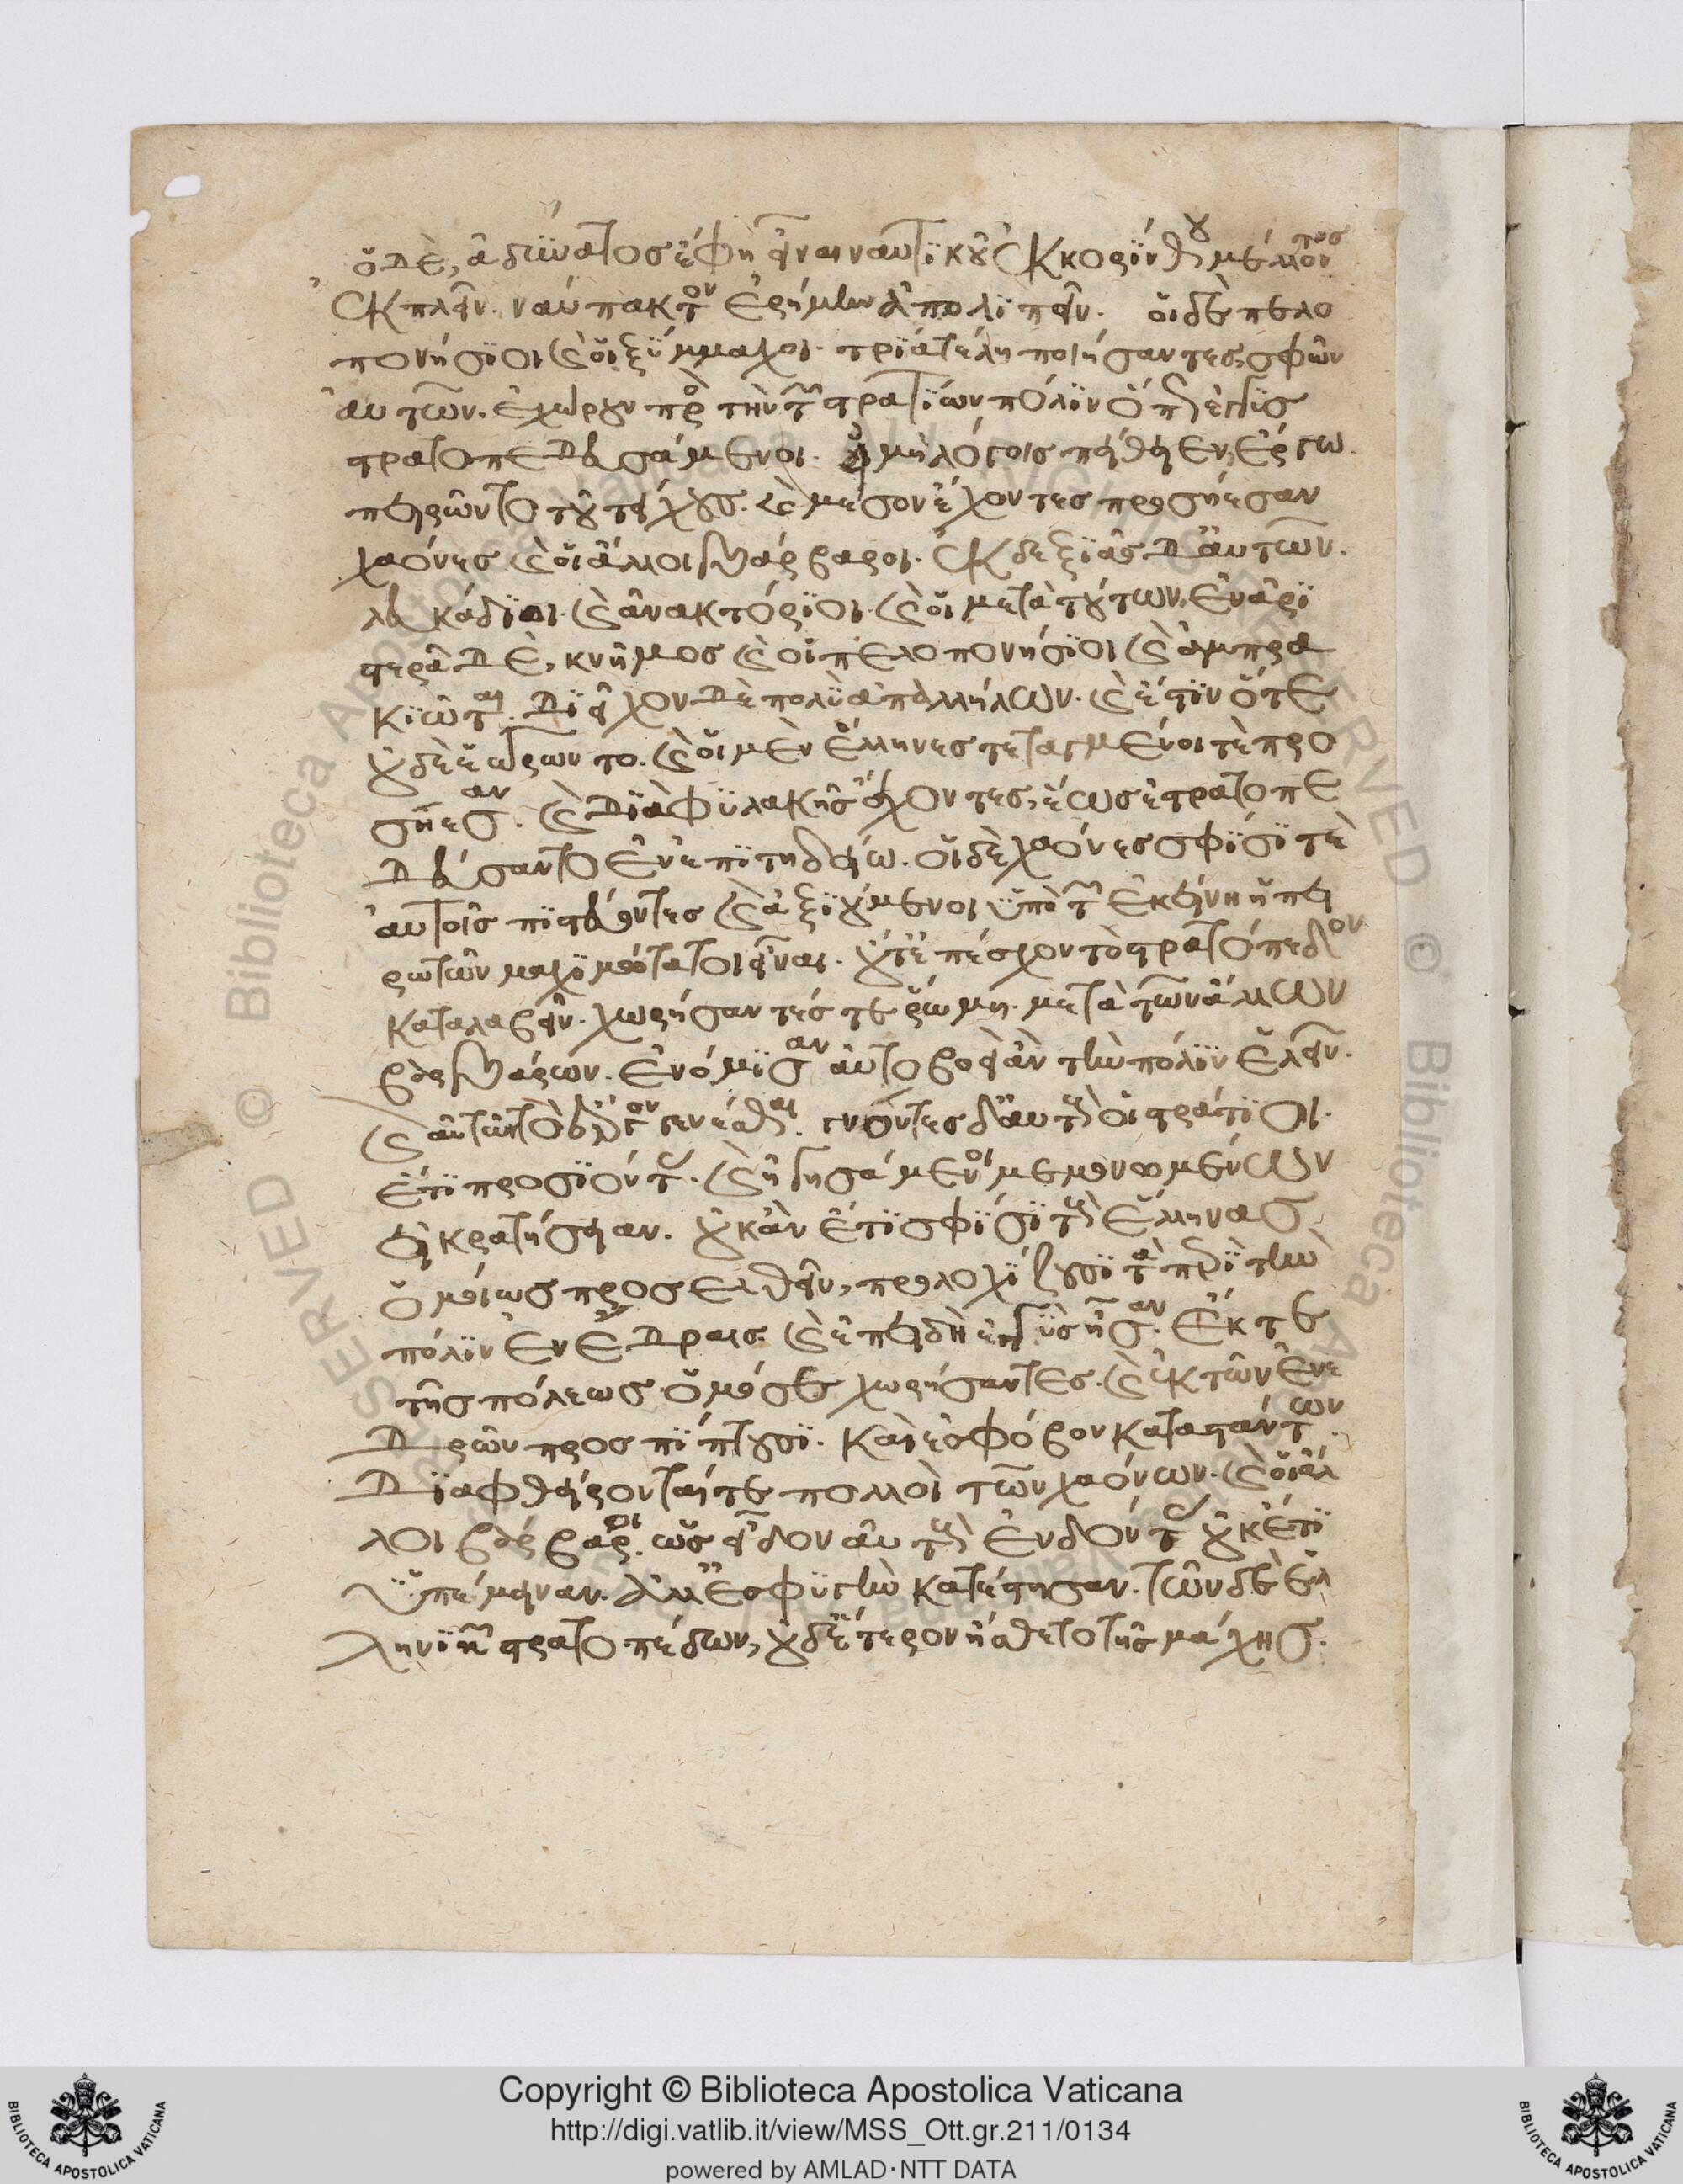 ὁ δὲ, ἀδύνατος ἔφη εἶναι ναυτικοῦ ἐκ κορίνθου μέλλοντος
ἐκπλεῖν. ναύπακτον ἐρήμην ἀπολιπεῖν. οἱ δὲ πελο
πονήσιοι καὶ οἱ ξύμμαχοι. τρία τέλη ποιήσαντες, σφῶν
αὐτῶν. ἐχώρουν πρὸς τὴν τῶν στρατίων πόλιν ὅπως ἐγγὺς
στρατοπεδευσάμενοι. εἰ μὴ λόγοις πείθειεν, ἔργω
πειρῶντο τοῦ τείχους. καὶ μέσον ἔχοντες προσήεσαν
χαόνες καὶ οἱ ἄλλοι βάρβαροι. ἐκ δεξιᾶς δ' αὐτῶν.
λευκάδιοι. καὶ ἀνακτόριοι. καὶ οἱ μετὰ τούτων. ἐν ἀρι
στερᾶ δὲ, κνῆμος καὶ οἱ πελοπονήσιοι καὶ ἀμπρα
κιῶται. διεῖχον δὲ πολὺ ἀπ' ἀλλήλων. καὶ ἔστιν ὅτε
οὐδὲ ἑωρῶντο. καὶ οἱ μὲν ἕλληνες τεταγμένοι τὲ προ
σῆεσαν. καὶ διὰ φυλακῆς ἔχοντες, ἕως ἐστρατοπε
δεύσαντο ἐν ἐπιτηδείω. οἱ δὲ χαόνες σφίσι τὲ
αὐτοῖς πιστεύοντες καὶ ἀξιούμενοι ὑπὸ τῶν ἐκείνη ἠπει
ρωτῶν μαχιμώτατοι εἶναι. οὔτε ἐπέσχον τὸ στρατόπεδον
καταλαβεῖν. χωρήσαντές τε ῥώμη. μετὰ τῶν ἄλλων
βαρβάρων. ἐνόμισαν αὐτοβοεὶ ἂν τὴν πόλιν ἑλεῖν.
καὶ αὐτῶν τὸ ἔργον γενέσθαι. γνόντες δ' αὐτοὺς οἱ στράτιοι.
ἔτι προσιόντας. καὶ ἡγησάμενοι μεμονωμένων
εἰ κρατήσειαν. οὐκ ἂν ἔτι σφίσι τοὺς ἕλληνας
ὁμοίως προσελθεῖν, προλοχίζουσι τὰ περὶ τὴν
πόλιν ἐνέδραις. καὶ ἐπειδὴ ἐγγὺς ἦσαν. ἔκ τε
τῆς πόλεως ὁμόσε χωρήσαντες. καὶ ἐκ τῶν ἐνε
δρῶν προσπίπτουσι. καὶ ἐς φόβον καταστάντων.
διαφθείρονταί τε πολλοὶ τῶν χαόνων. καὶ οἱ ἄλ
λοι βάρβαροι. ὡς εἶδον αὐτοὺς ἐνδόντας οὐκέτι
ὑπέμειναν. ἀλλ' ἐς φυγὴν κατέστησαν. τῶν δὲ ἑλ
ληνικῶν στρατοπέδων, οὐδέτερον ἤσθετο τῆς μάχης.
Copyright © Biblioteca Apostolica Vaticana
http://digi.vatlib.it/view/MSS_Ott.gr.211/0134
powered by AMLAD·NTT DATA
BIBLIOTECA APOSTOLICA VATICANA
BIBLIOTECA APOSTOLICA VATICANA